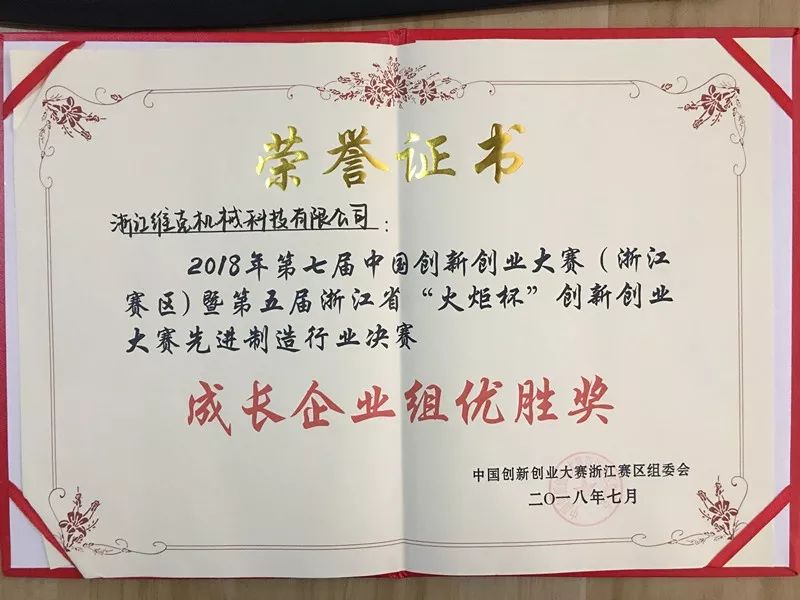 荣誉证书
浙江维克机械科技有限公司：
2018年第七届中国创新创业大赛（浙江
赛区）暨第五届浙江省“火炬杯”创新创业
大赛先进制造行业决赛
成长企业组优胜奖
中国创新创业大赛浙江赛区组委会
二〇一八年七月